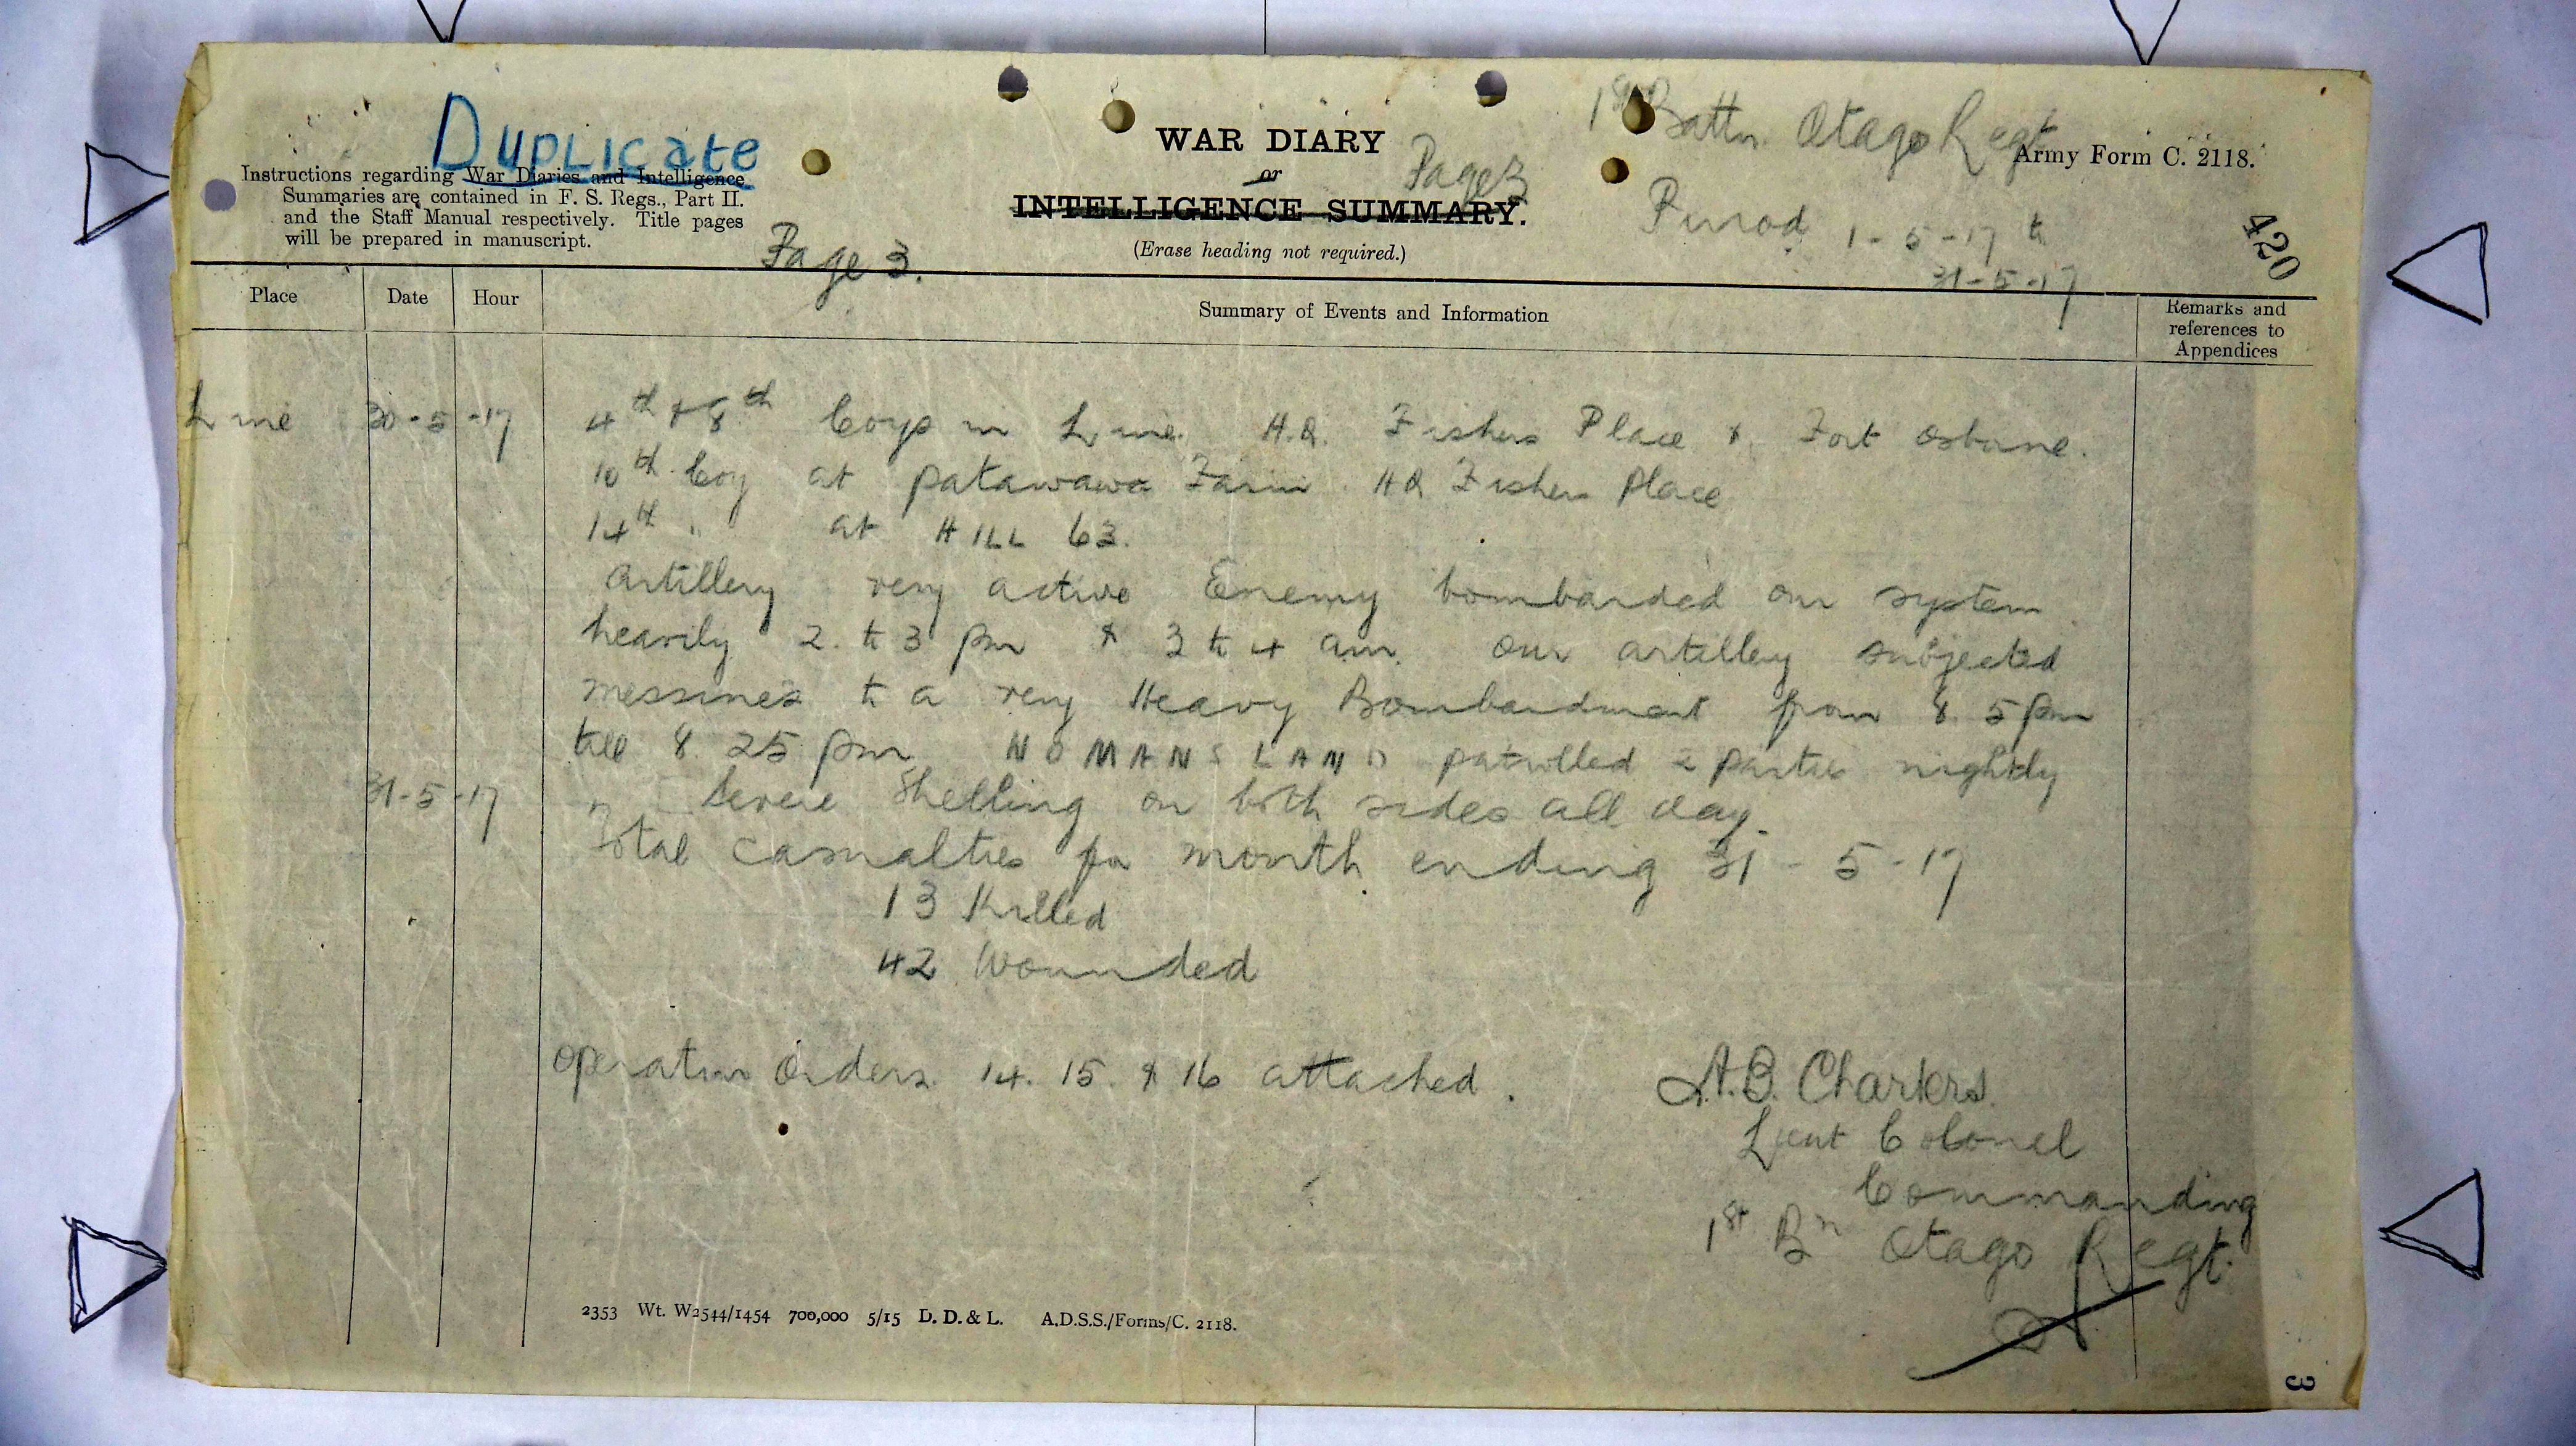 Duplicate
Instructions regarding War Diaries and Intelligence
Summaries are contained in F. S. Regs., Part II.
and the Staff Manual respectively. Title pages
will be prepared in manuscript.
Page 3.
WAR DIARY
or
INTELLIGENCE SUMMARY.
(Erase heading not required.)
Page 3
1st Battn. Otago Regt
Army Form C. 2118.
Period 1-5-17 to
31-5-17
420
Place Date Hour Summary of Events and Information Remarks and
references to
Appendices
Line 30-5-17 4th & 8th Coys in Line. H.Q. Fishers Place & Fort Osborne.
10th Coy at Patawawa Farm. HQ Fishers Place
14th " at HILL 63.
Artillery very active Enemy bombarded our system
heavily 2. to 3 pm & 3 to 4 am. Our artillery subjected
Messines to a very Heavy Bombardment from 8. 5 pm
till 8. 25 pm NOMANS LAND patrolled 2 parties nightly
31-5-17 Severe Shelling on both sides all day.
Total casualties for month ending 31-5-17
13 Killed
42 Wounded
Operation Orders 14. 15. & 16 attached.
A.B. Charters.
Lieut Colonel
Commanding
1st Bn Otago Regt.
2353 Wt. W2544/1454 700,000 5/15 D. D. & L. A.D.S.S./Forms/C. 2118.
3